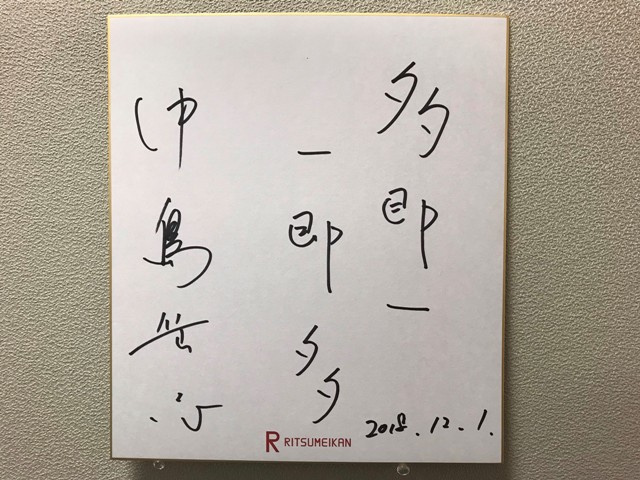 多即一
一即多
中島岳志
2018.12.1.
RITSUMEIKAN